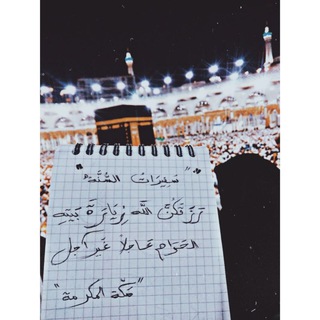 "سفيرات السُّنَّة"
رَزَقَكُنَّ اللّٰه زِيَارَةَ بَيْتِهِ
الحَرَام عَاجِلاً غَيرَ آجِل
"مَكَّة المكرمة"